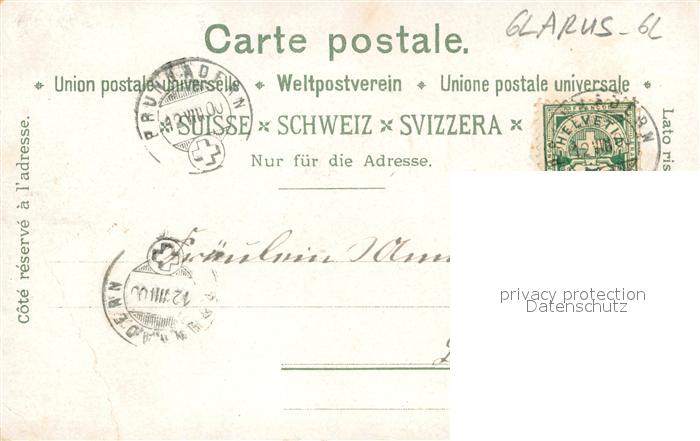 GLARUS - GL
Carte postale.
Union postale universelle Weltpostverein Unione postale universale
SUISSE × SCHWEIZ × SVIZZERA
Nur für die Adresse.
Côté réservé à l'adresse.
Lato ris
BRUNNADERN
12.VIII.00
HELVETIA
12 VIII
DERN
Fräulein Ann
12.VIII.00
DERN
privacy protection
Datenschutz